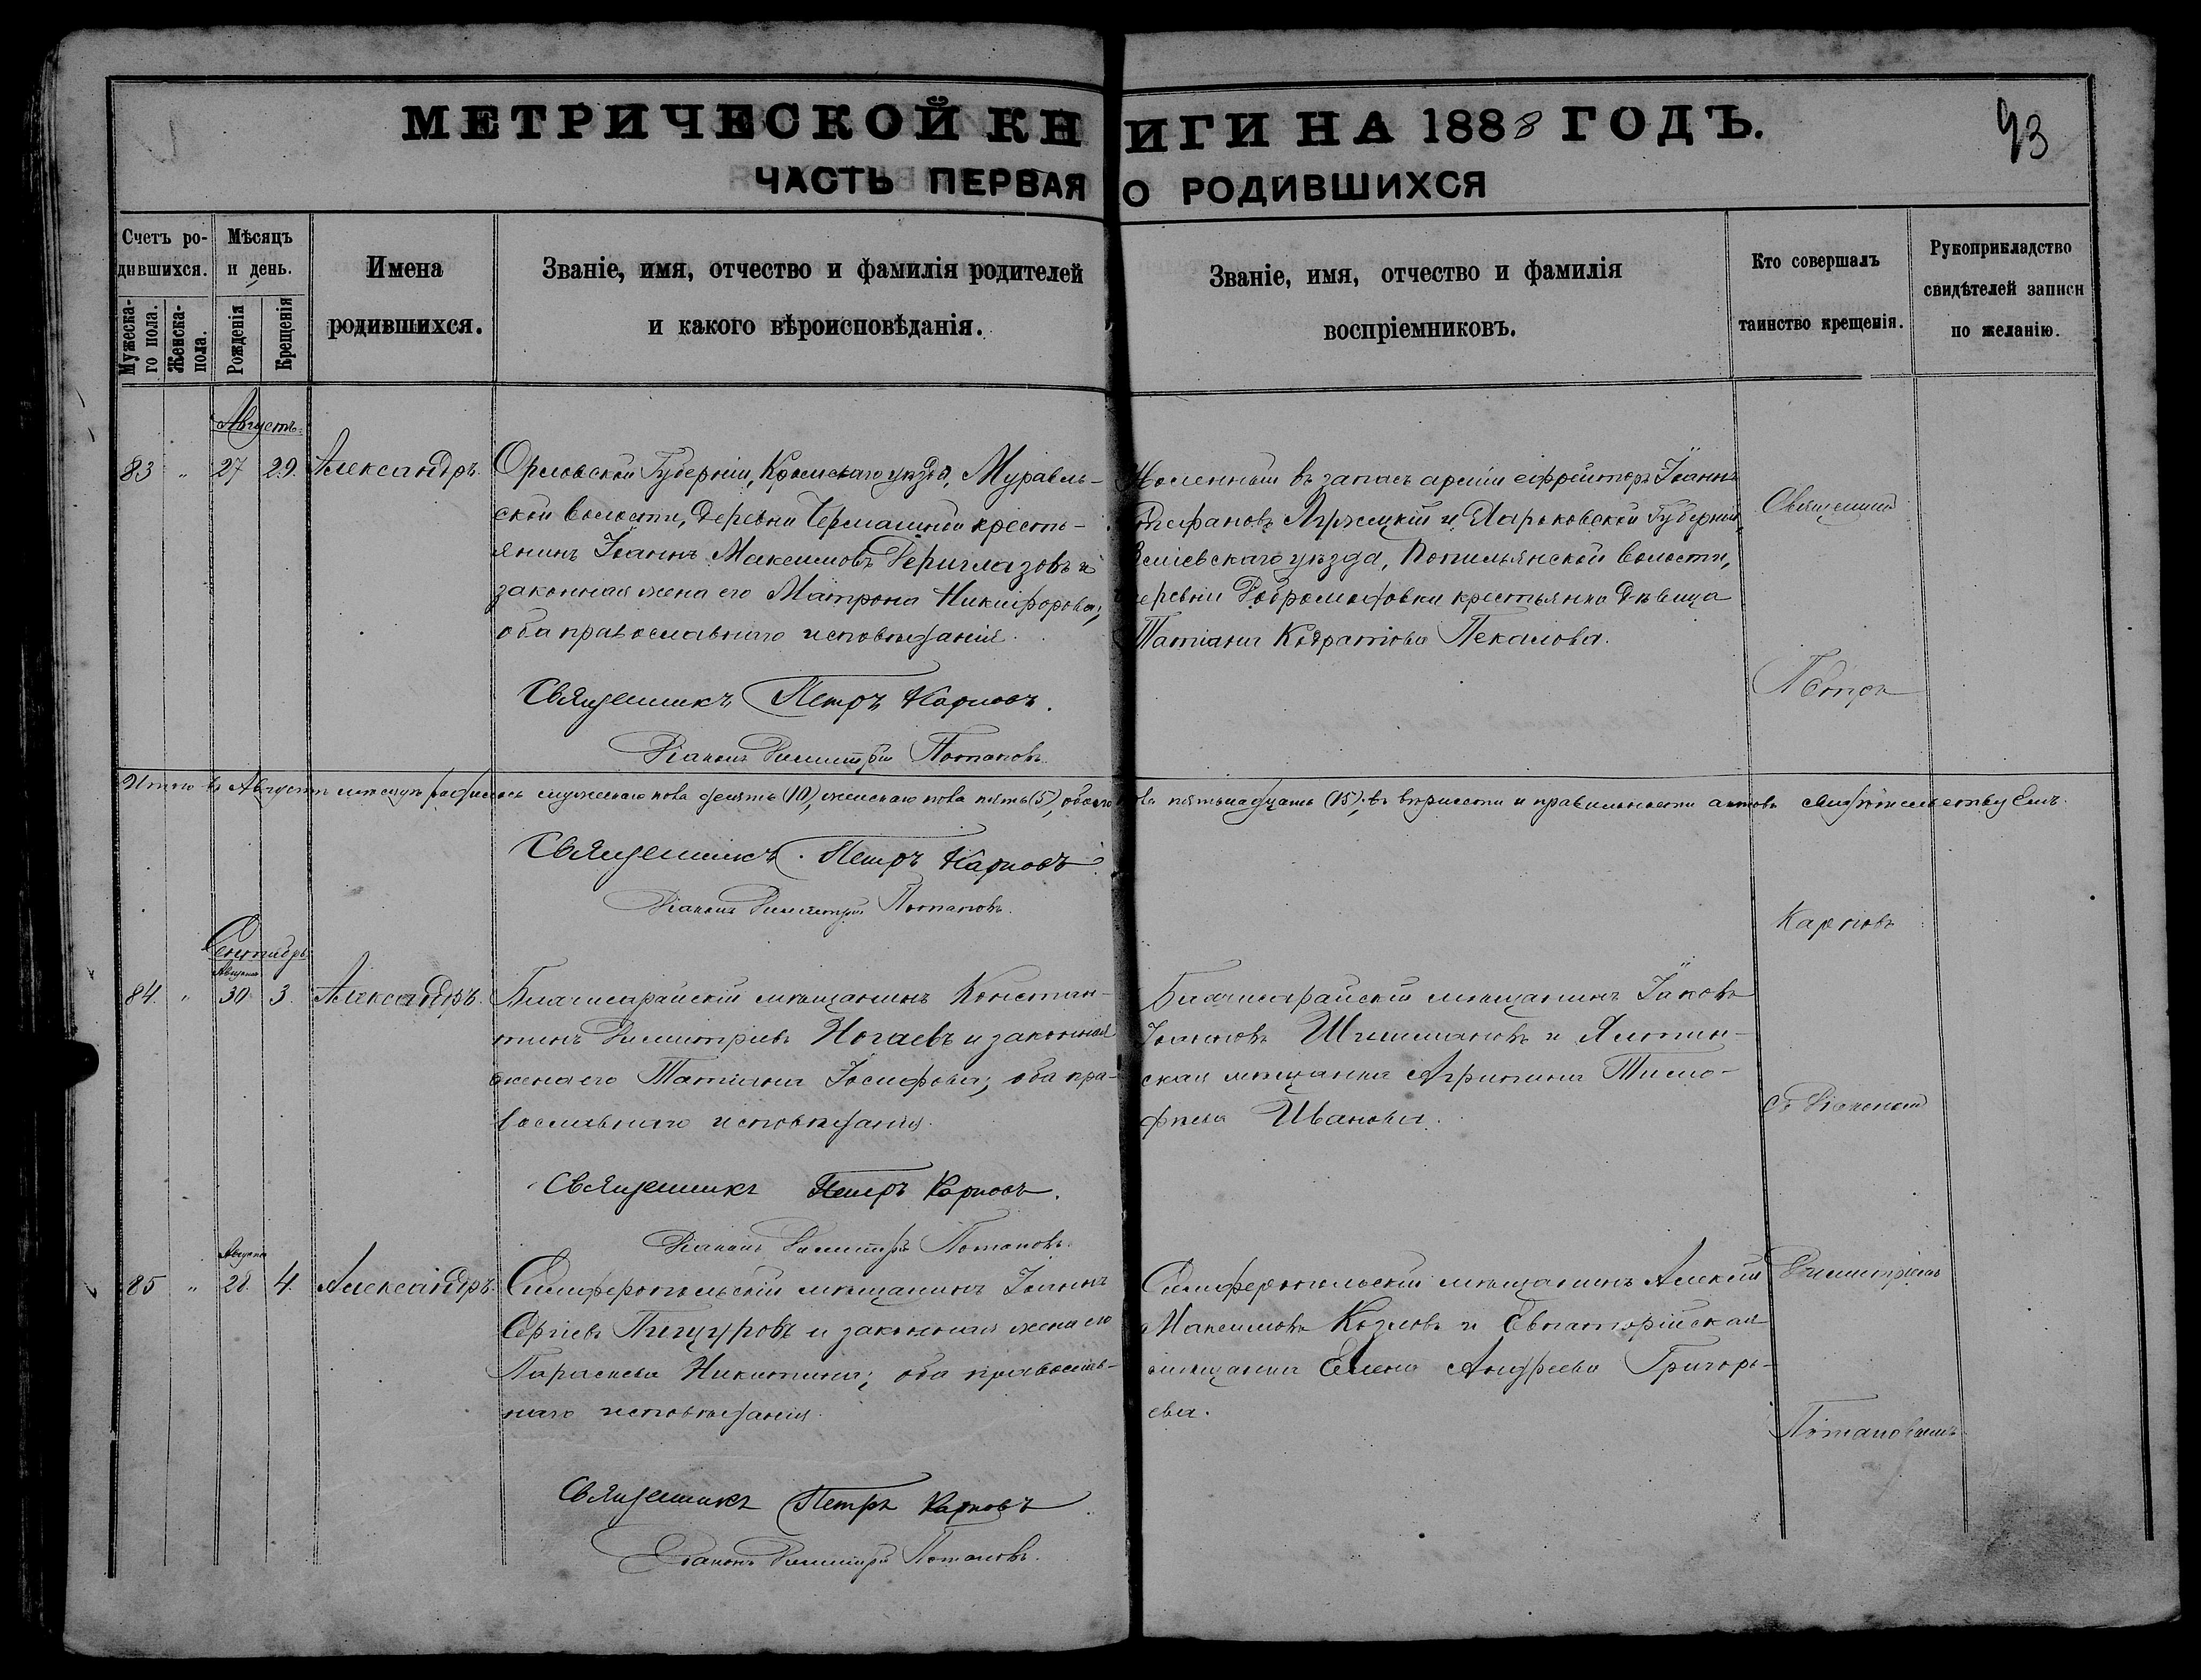 МЕТРИЧЕСКОЙ КНИГИ НА 1888 ГОДЪ.
93
ЧАСТЬ ПЕРВАЯ О РОДИВШИХСЯ
Счетъ родившихся.
Мужеска-го пола.
Женска-пола.
Мѣсяцъ и день.
Рожденія
Крещенія
Имена родившихся.
Званіе, имя, отчество и фамилія родителей
и какого вѣроисповѣданія.
Званіе, имя, отчество и фамилія
воспріемниковъ.
Кто совершалъ
таинство крещенія.
Рукоприкладство
свидѣтелей записи
по желанію.
Августъ
83 " 27 29. Александръ.
Орловской Губерніи, Кромскаго уѣзда, Муравль-
ской волости, деревни Чермашной кресть-
янинъ Іоаннъ Максимовъ Дериглазовъ и
законная жена его Матрона Никифорова;
оба православнаго исповѣданія.
въ запасъ арміи ефрейторъ Іоаннъ
Стефановъ и Харьковской Губерніи,
Зміевскаго уѣзда, волости,
деревни крестьянка дѣвица
Татіана Пекалова.
Священникъ Петръ Карповъ.
Діаконъ Димитрій Потаповъ.
Итого въ Августѣ мѣсяцѣ родилось мужескаго пола десять (10), женскаго пола пять (5), обоего пола пятьнадцать (15); въ вѣрности и правильности актовъ свидѣтельствуемъ.
Священникъ Петръ Карповъ.
Діаконъ Димитрій Потаповъ.
Сентябрь
Августа
84. " 30. 3. Александръ.
мѣщанинъ Констан-
тинъ Димитріевъ Ногаевъ и законная
жена его Татіана Іосифова; оба пра-
вославнаго исповѣданія.
мѣщанинъ Іаковъ
Іоанновъ Шишмановъ и Ялтин-
ская мѣщанка Агрипина Тимо-
фѣева Иванова.
Священникъ Петръ Карповъ.
Діаконъ Димитрій Потаповъ.
Августа
85 " 28. 4. Александръ.
Симферопольскій мѣщанинъ Іоаннъ
Сергіевъ и законная жена его
Параскева Никитина; оба православ-
наго исповѣданія.
Симферопольскій мѣщанинъ Алексій
Максимовъ Козловъ и Евпаторійская
мѣщанка Елена Андреева Григорь-
ева.
Священникъ Петръ Карповъ
Діаконъ Димитрій Потаповъ.
Священникъ
Петръ
Карповъ
съ Діакономъ
Димитріемъ
Потаповымъ